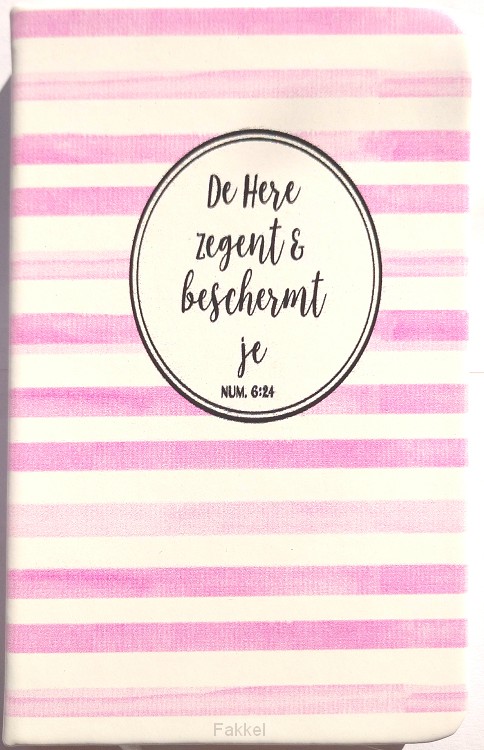 De Here
zegent &
beschermt
je
NUM. 6:24
Fakkel